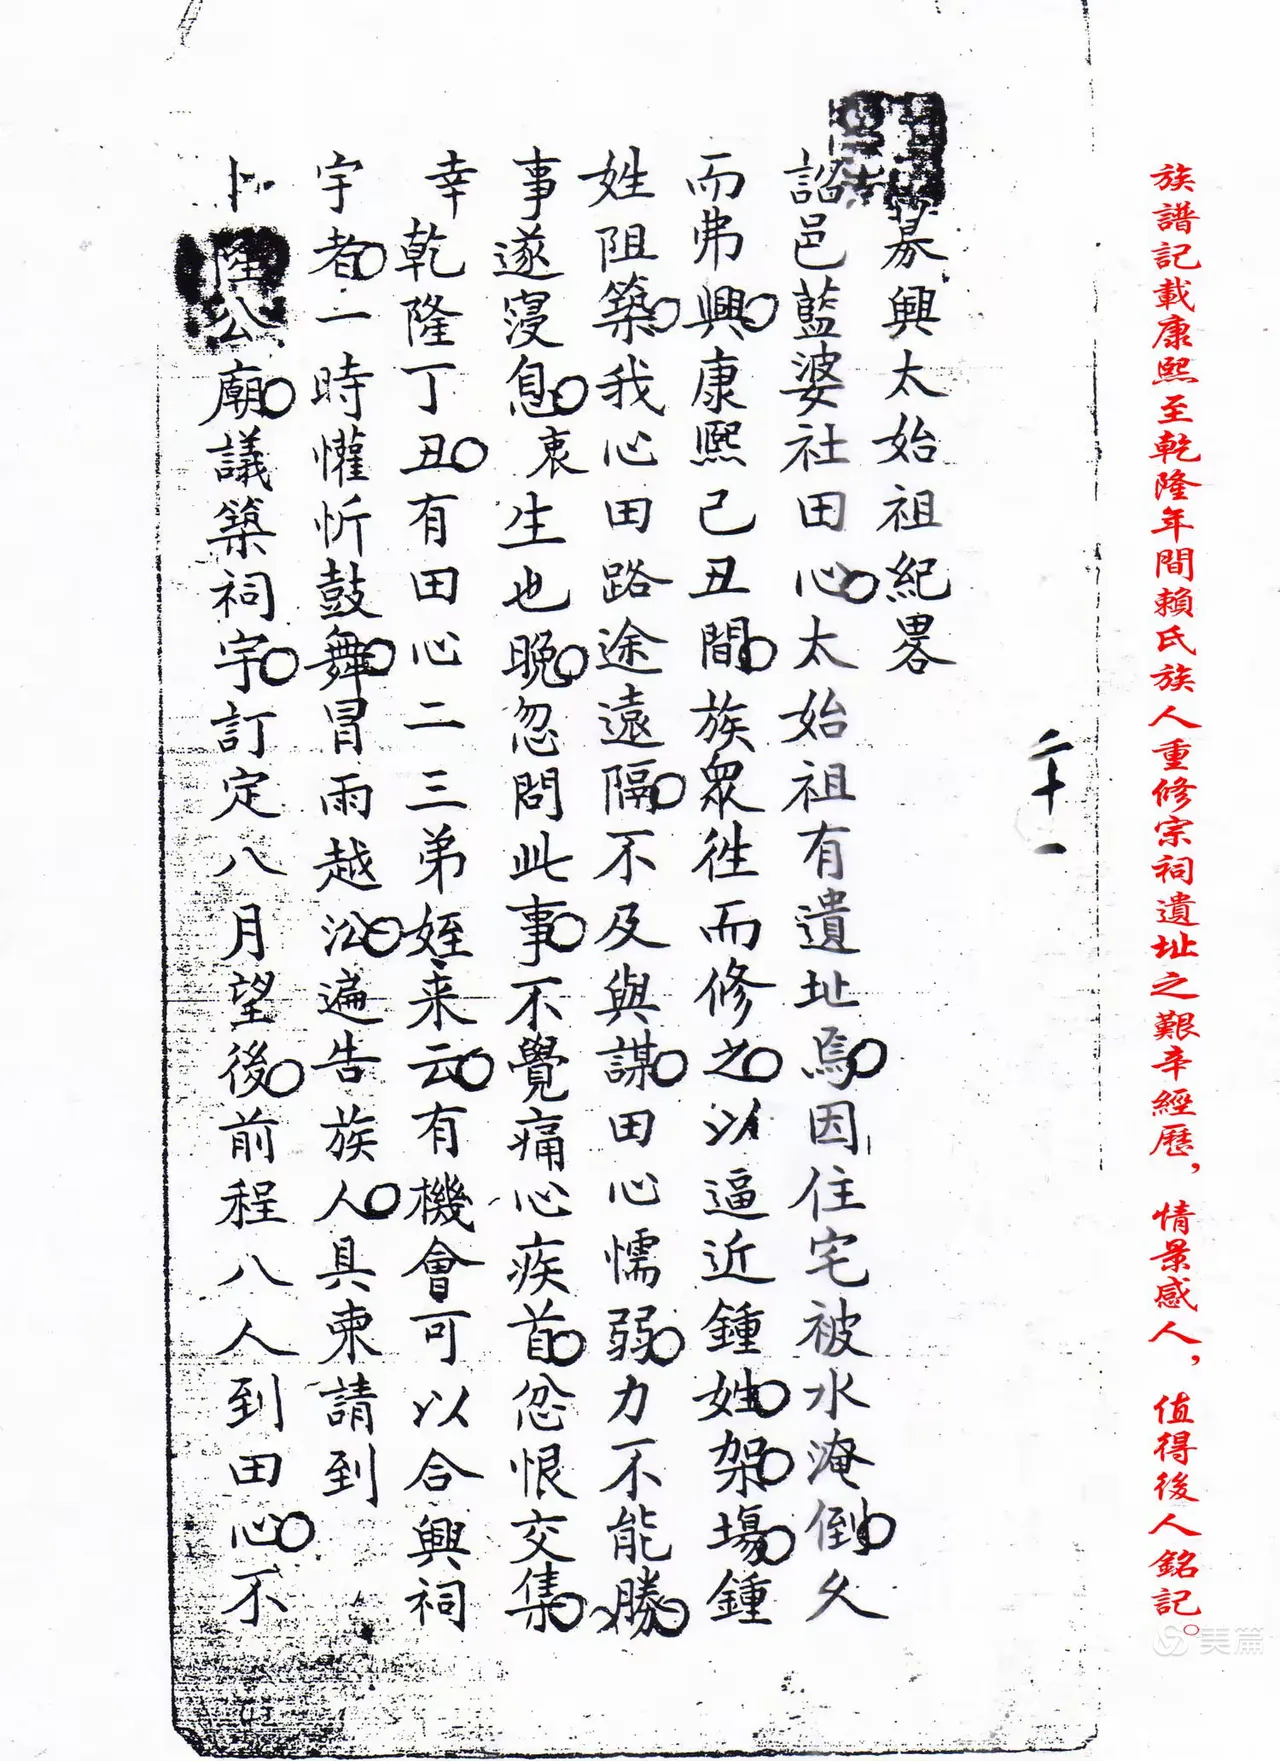 族譜記載康熙至乾隆年間賴氏族人重修宗祠遺址之艱辛經歷，情景感人，值得後人銘記。
二十一
募興太始祖紀畧
詔邑藍婆社田心○太始祖有遺址焉○因住宅被水淹倒○久
而弗興○康熙己丑間○族眾徃而修之○以逼近鍾姓○架○塲○鍾
姓阻築○我心田路途遠隔○不及與謀○田心懦弱○力不能勝○
事遂寢息○衷生也晚○忽問此事○不覺痛心疾首○忿恨交集○
幸乾隆丁丑○有田心二三弟姪来云○有機會可以合興祠
宇者○一時懽忻鼓舞○冒雨越㳂○遍告族人○具柬請到
卜隆公廟○議築祠宇○訂定八月望後○前程八人到田心○不
美篇